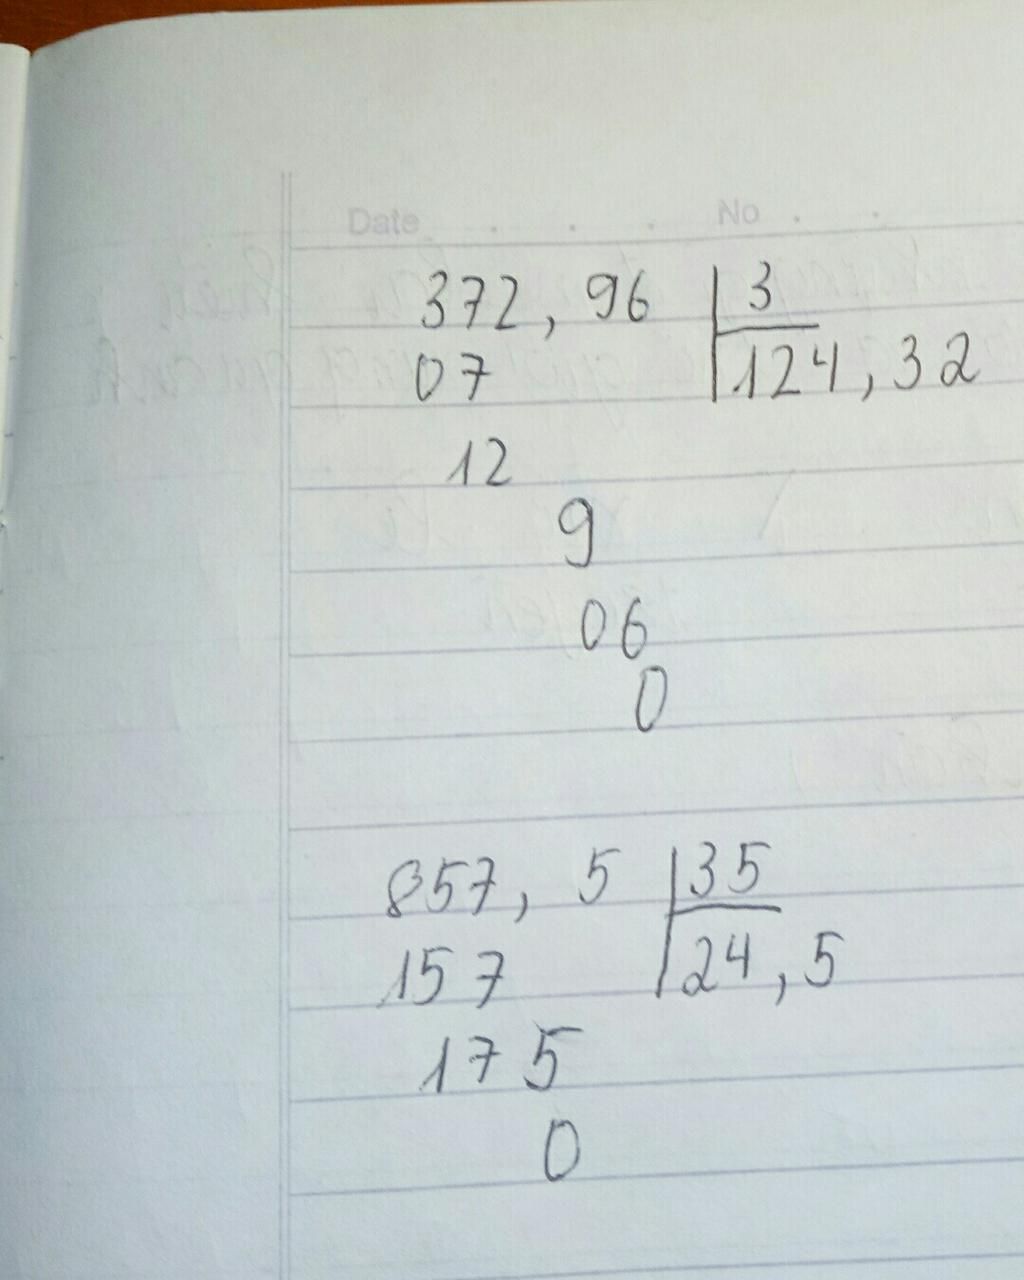 Date No
372, 96 3
07 124, 32
12
9
06
0
857, 5 35
157 24, 5
175
0